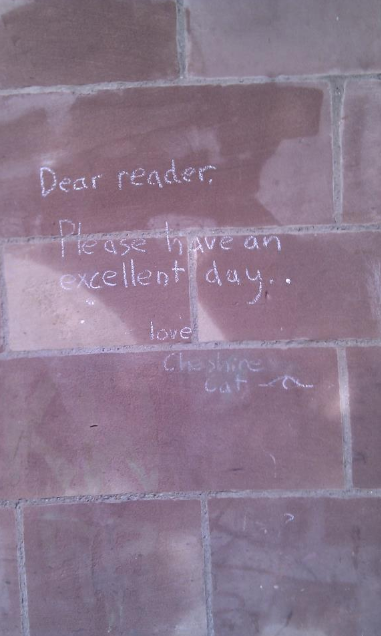 Dear reader,
Please have an
excellent day..
love
Cheshire
Cat